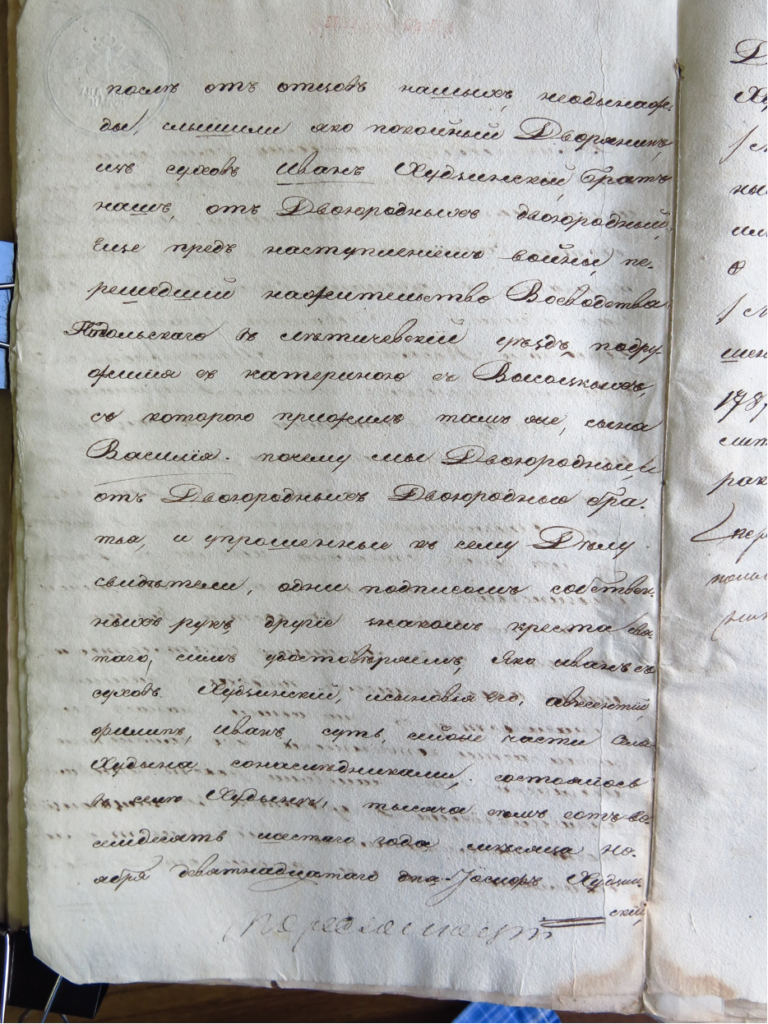 послѣ отъ отцовъ нашыхъ, неодынаж-
ды, слышили яко покойный Дворянинъ
изъ суховъ Иванъ Худзинскій, братъ
нашъ, отъ Двоюродныхъ двоюродный,
Еще предъ наступленіемъ войны, пе-
решедшій нажительство Воеводства
Подольскаго въ летичевскій уѣздъ, подру-
жился съ катериною съ Высоцкыхъ,
съ которою прижилъ тамъ же, сына
Василія. почему мы Двоюродныи,
отъ Двоюродныхъ Двоюродные бра-
тья, и упрошенные къ сему Дѣлу
свидѣтели, одни подписомъ собствен-
ныхъ рукъ, другіе знакомъ креста свя-
таго, симъ удостовѣряемъ, яко иванъ съ
суховъ Худзинскій, исыновья его, авксентій,
филипъ, Иванъ, суть, части села
Худына сонаслѣдниками, состоялось
въ селѣ Худынѣ, тысяча семъ сотъ во-
семдесятъ шестаго года мѣсяца но-
ября девятнадцатаго дня Іосифъ Худзин-
скій,